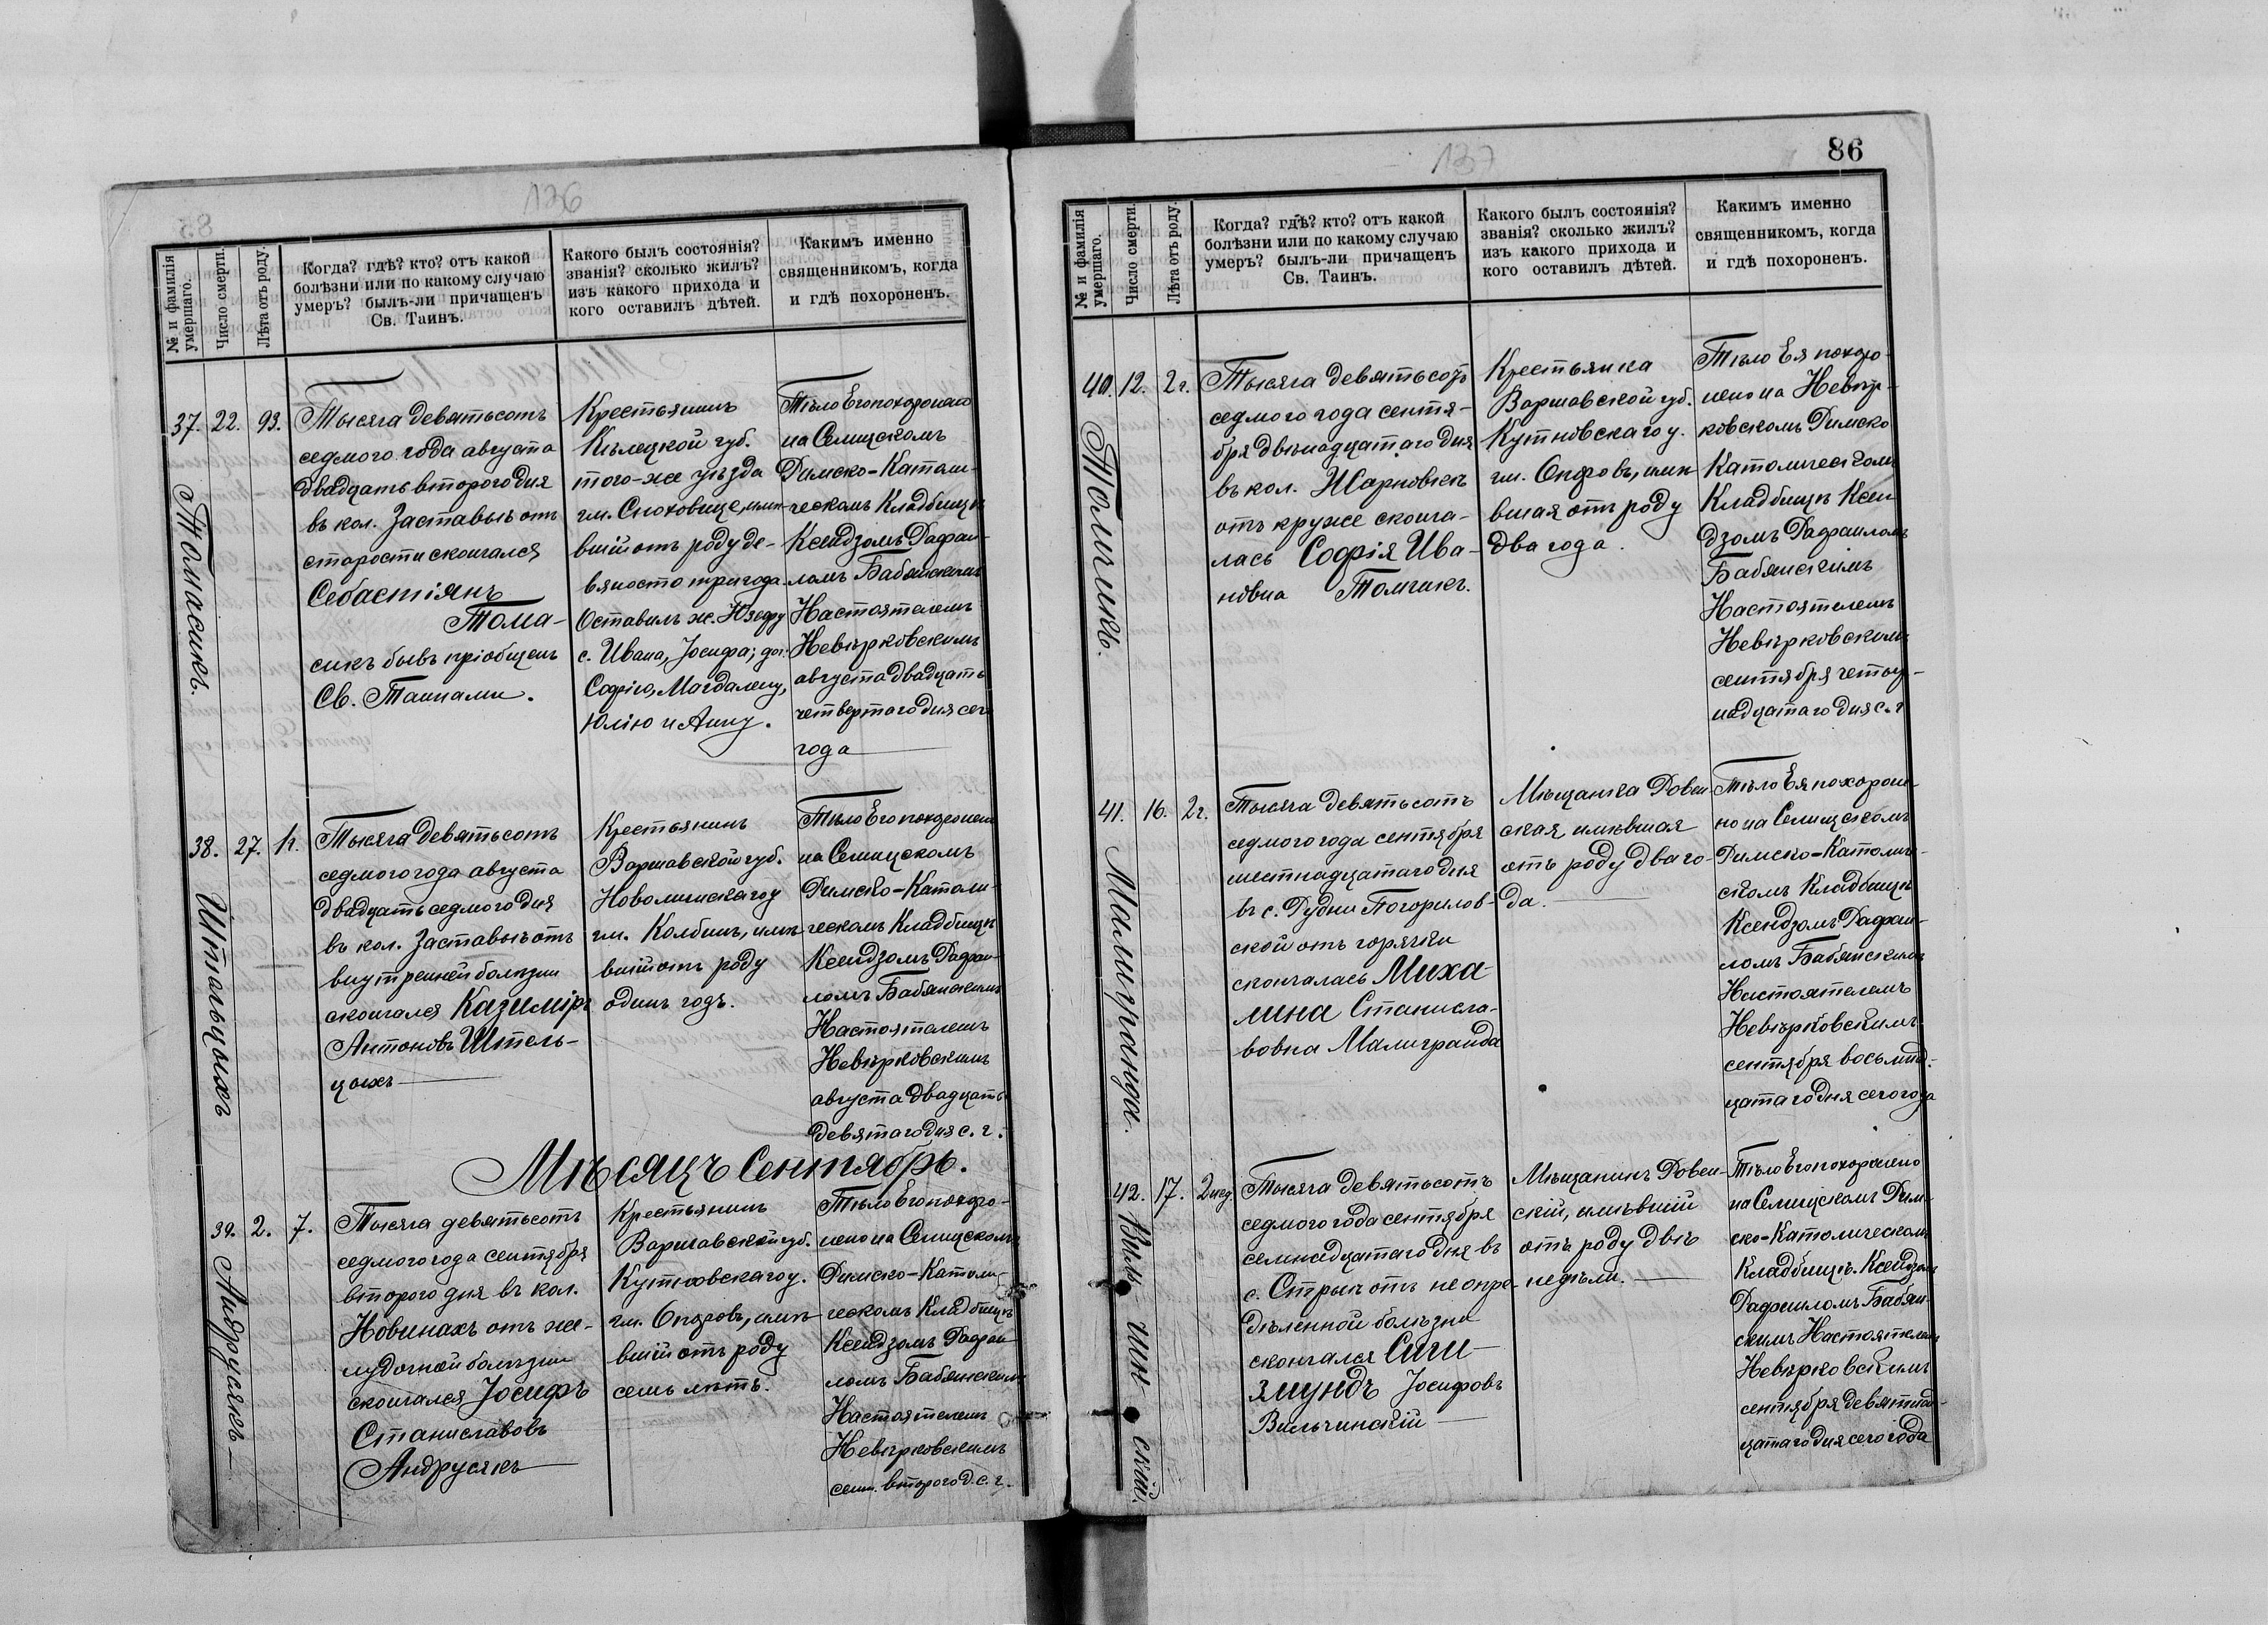 136
№ и фамилія
умершаго.
Число смерти.
Лѣта отъ роду.
Когда? гдѣ? кто? отъ какой
болѣзни или по какому случаю
умеръ? былъ-ли причащенъ
Св. Таинъ.
Какого былъ состоянія?
званія? сколько жилъ?
изъ какого прихода и
кого оставилъ дѣтей.
Какимъ именно
священникомъ, когда
и гдѣ похороненъ.
37.
Томасикъ.
22.
93.
Тысяча девятьсотъ
седмого года августа
двадцать второго дня
въ кол. Заставье отъ
старости скончался
Себастіянъ
Тома-
сикъ бывъ пріобщенъ
Св. Таинами.
Крестьянинъ
Кѣлецкой губ.
того-же уѣзда
гм. Сноховице, имѣ-
вшій отъ роду де-
вяносто три года.
Оставилъ ж. Юзефу
с. Ивана, Іосифа; доч.
Софію, Магдалену,
Юлію и Анну.
Тѣло Его похоронено
на Селищскомъ
Римско-Католи-
ческомъ Кладбищѣ
Ксендзомъ Рафаи-
ломъ Бабянскимъ
Настоятелемъ
Невѣрковскимъ
августа двадцать
четвертаго дня сего
года
38.
Штельцыхъ
27.
1г.
Тысяча девятьсотъ
седмого года августа
двадцать седмого дня
въ кол. Заставье отъ
внутренней болѣзни
скончался Казиміръ
Антоновъ Штель-
цыхъ
Крестьянинъ
Варшавской губ.
Новоминскаго у
гм. Колбель, имѣ-
вшій отъ роду
одинъ годъ.
Тѣло Его похоронено
на Селищскомъ
Римско-Католи-
ческомъ Кладбищѣ
Ксендзомъ Рафаи-
ломъ Бабянскимъ
Настоятелемъ
Невѣрковскимъ
августа двадцать
девятаго дня с. г.
Мѣсяцъ Сентябрь.
39.
Андрусякъ
2.
7.
Тысяча девятьсотъ
седмого года сентября
второго дня въ кол.
Новинахъ отъ же-
лудочной болѣзни
скончался Іосифъ
Станиславовъ
Андрусякъ
Крестьянинъ
Варшавской губ.
Кутновскаго у.
гм. Опоровъ, имѣ-
вшій отъ роду
семь лѣтъ.
Тѣло Его похоро-
нено на Селищскомъ
Римско-Католи-
ческомъ Кладбищѣ
Ксендзомъ Рафаи-
ломъ Бабянскимъ
Настоятелемъ
Невѣрковскимъ
сент. второго д. с. г.
137
86
№ и фамилія
умершаго.
Число смерти.
Лѣта отъ роду.
Когда? гдѣ? кто? отъ какой
болѣзни или по какому случаю
умеръ? былъ-ли причащенъ
Св. Таинъ.
Какого былъ состоянія?
званія? сколько жилъ?
изъ какого прихода и
кого оставилъ дѣтей.
Какимъ именно
священникомъ, когда
и гдѣ похороненъ.
40.
Томчикъ.
12.
2г.
Тысяча девятьсотъ
седмого года сентя-
бря двѣнадцатаго дня
въ кол. Жарновекъ
отъ круже сконча-
лась Софія Ива-
новна Томчикъ.
Крестьянка
Варшавской губ.
Кутновскаго у.
гм. Опоровъ, имѣ
вшая отъ роду
два года.
Тѣло Ея похоро-
нено на Невѣр-
ковскомъ Римско
Католическомъ
Кладбищѣ Ксен
дзомъ Рафаиломъ
Бабянскимъ
Настоятелемъ
Невѣрковскимъ
сентября четыр-
надцатаго дня с. г
41.
Малигранда.
16.
2г.
Тысяча девятьсотъ
седмого года сентября
шестнадцатаго дня
въ с. Рудни Погорилов-
ской отъ горячки
скончалась Миха-
лина Станисла-
вовна Малигранда
Мѣщанка Ровен-
ская имѣвшая
отъ роду два го-
да.
Тѣло Ея похороне-
но на Селищскомъ
Римско-Католиче-
скомъ Кладбищѣ
Ксендзомъ Рафаи-
ломъ Бабянскимъ
Настоятелемъ
Невѣрковскимъ
сентября восьмнад-
цатаго дня сего года
42.
Вильчинскій.
17.
2 нед
Тысяча девятьсотъ
седмого года сентября
семнадцатаго дня въ
с. Стрыи отъ не опре-
дѣленной болѣзни
скончался Сиги-
змундъ Іосифовъ
Вильчинскій
Мѣщанинъ Ровен-
скій, имѣвшій
отъ роду двѣ
недѣли.
Тѣло Его похоронено
на Селищскомъ Рим-
ско-Католическомъ
Кладбищѣ. Ксендзомъ
Рафаиломъ Бабян-
скимъ Настоятелемъ
Невѣрковскимъ
сентября девятнад-
цатаго дня сего года